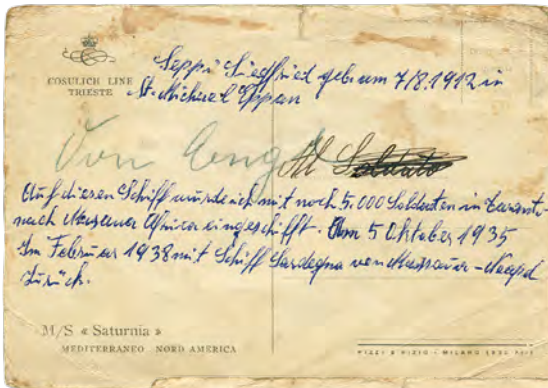 COSULICH LINE
TRIESTE
Seppi Siegfried geb. am 7/8.1912 in
St. Michael Eppan
Von
Al Soldato
Auf diesen Schiff wurde ich mit noch 5.000 Soldaten in
nach Africa eingeschifft. Am 5 Oktober 1935
Im Februar 1938 mit Schiff Sardegna von Massaua - Neapel
zurück.
M/S « Saturnia »
MEDITERRANEO NORD AMERICA
PIZZI & PIZIO - MILANO